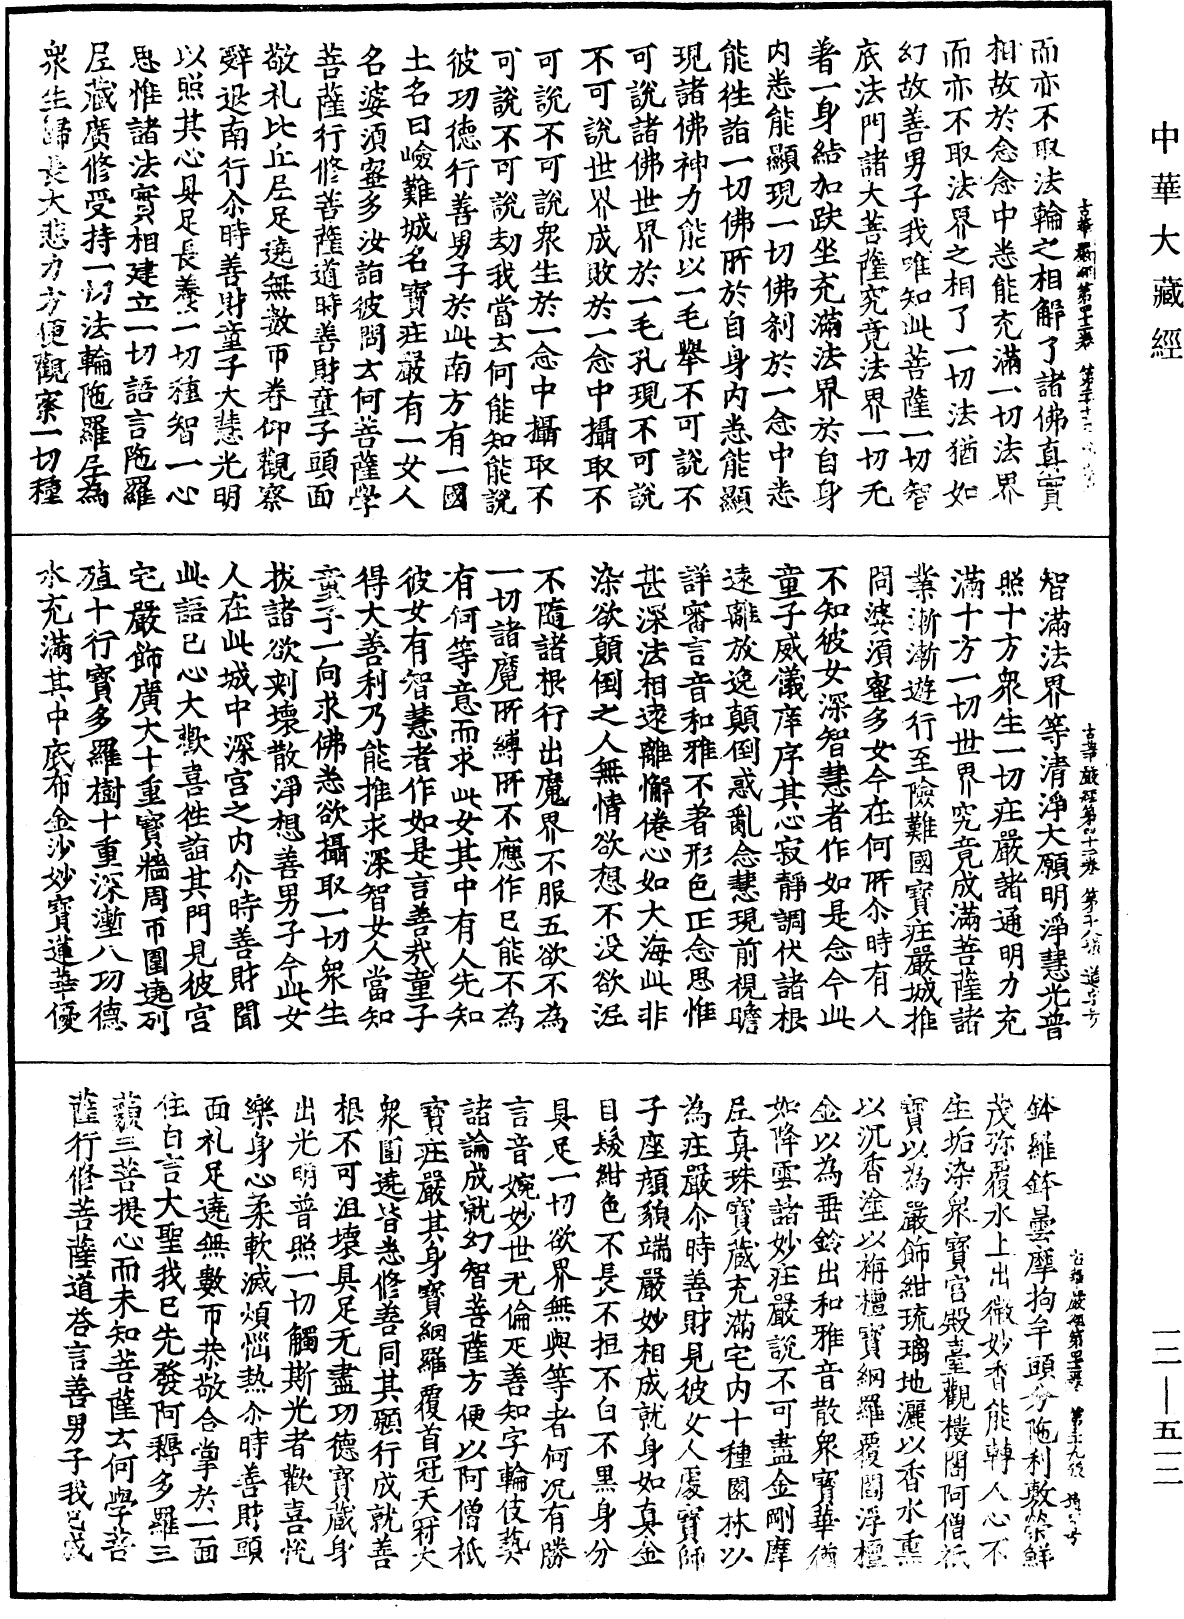 中華大藏經
而亦不取法輪之相解了諸佛真實
相故於念念中悉能充滿一切法界
而亦不取法界之相了一切法猶如
幻故善男子我唯知此菩薩一切智
底法門諸大菩薩究竟法界一切无
著一身結加趺坐充滿法界於自身
內悉能顯現一切佛剎於一念中悉
能往詣一切佛所於自身內悉能顯
現諸佛神力能以一毛舉不可說不
可說諸佛世界於一毛孔現不可說
不可說世界成敗於一念中攝取不
可說不可說衆生於一念中攝取不
可說不可說劫我當云何能知能說
彼功德行善男子於此南方有一國
土名曰嶮難城名寶莊嚴有一女人
名婆須蜜多汝詣彼問云何菩薩學
菩薩行修菩薩道時善財童子頭面
敬礼比丘尼足遶無數帀眷仰觀察
辭退南行尒時善財童子大慧光明
以照其心具足長養一切種智一心
思惟諸法實相建立一切語言陁羅
尼藏廣修受持一切法輪陁羅尼為
衆生歸長大悲力方便觀察一切種
智滿法界等清淨大願明淨慧光普
照十方衆生一切莊嚴諸通明力充
滿十方一切世界究竟成滿菩薩諸
業漸漸遊行至險難國寶莊嚴城推
問婆須蜜多女今在何所尒時有人
不知彼女深智慧者作如是念今此
童子威儀庠序其心寂靜調伏諸根
遠離放逸顛倒惑亂念慧現前視瞻
詳審言音和雅不著形色正念思惟
甚深法相遠離懈倦心如大海此非
染欲顛倒之人無情欲想不没欲泥
不隨諸根行出魔界不服五欲不為
一切諸魔所縛所不應作已能不為
有何等意而求此女其中有人先知
彼女有智慧者作如是言善哉童子
得大善利乃能推求深智女人當知
童子一向求佛悉欲攝取一切衆生
拔諸欲刺壞散淨想善男子今此女
人在此城中深宫之內尒時善財聞
此語已心大歡喜往詣其門見彼宫
宅嚴飾廣大十重寶墻周帀圍遶列
殖十行寶多羅樹十重深塹八功德
水充滿其中底布金沙妙寶蓮華優
鉢羅鉢曇摩拘牟頭分陁利敷榮鮮
茂弥覆水上出微妙香能轉人心不
生垢染衆寶宫殿臺觀樓閣阿僧祇
寶以為嚴飾紺琉璃地灑以香水熏
以沉香塗以栴檀寶網羅覆閻浮檀
金以為垂鈴出和雅音散衆寶華猶
如降雲諸妙莊嚴說不可盡金剛摩
尼真珠寶藏充滿宅內十種園林以
為莊嚴尒時善財見彼女人處寶師
子座顔貌端嚴妙相成就身如真金
目髮紺色不長不短不白不黑身分
具足一切欲界無與等者何況有勝
言音婉妙世无倫疋善知字輪伎藝
諸論成就幻智菩薩方便以阿僧祇
寶莊嚴其身寶網羅覆首冠天冠大
衆圍遶皆悉修善同其願行成就善
根不可沮壞具足无盡功德寶藏身
出光明普照一切觸斯光者歡喜悅
樂身心柔軟滅煩惱熱尒時善財頭
面礼足遶無數帀恭敬合掌於一面
住白言大聖我已先發阿耨多羅三
藐三菩提心而未知菩薩云何學菩
薩行修菩薩道荅言善男子我已成
一二—五一二